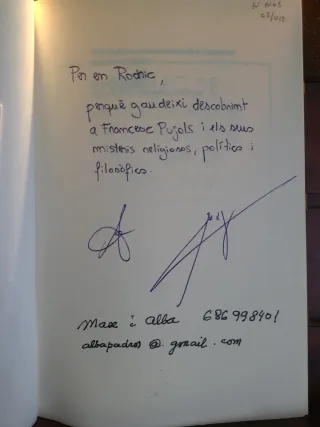 Per en Rodric,
perquè gaudeixi descobrint
a Francesc Pujols i els seus
misteris religiosos, polítics i
filosòfics.
Marc i Alba 686998401
albapadros@gmail.com